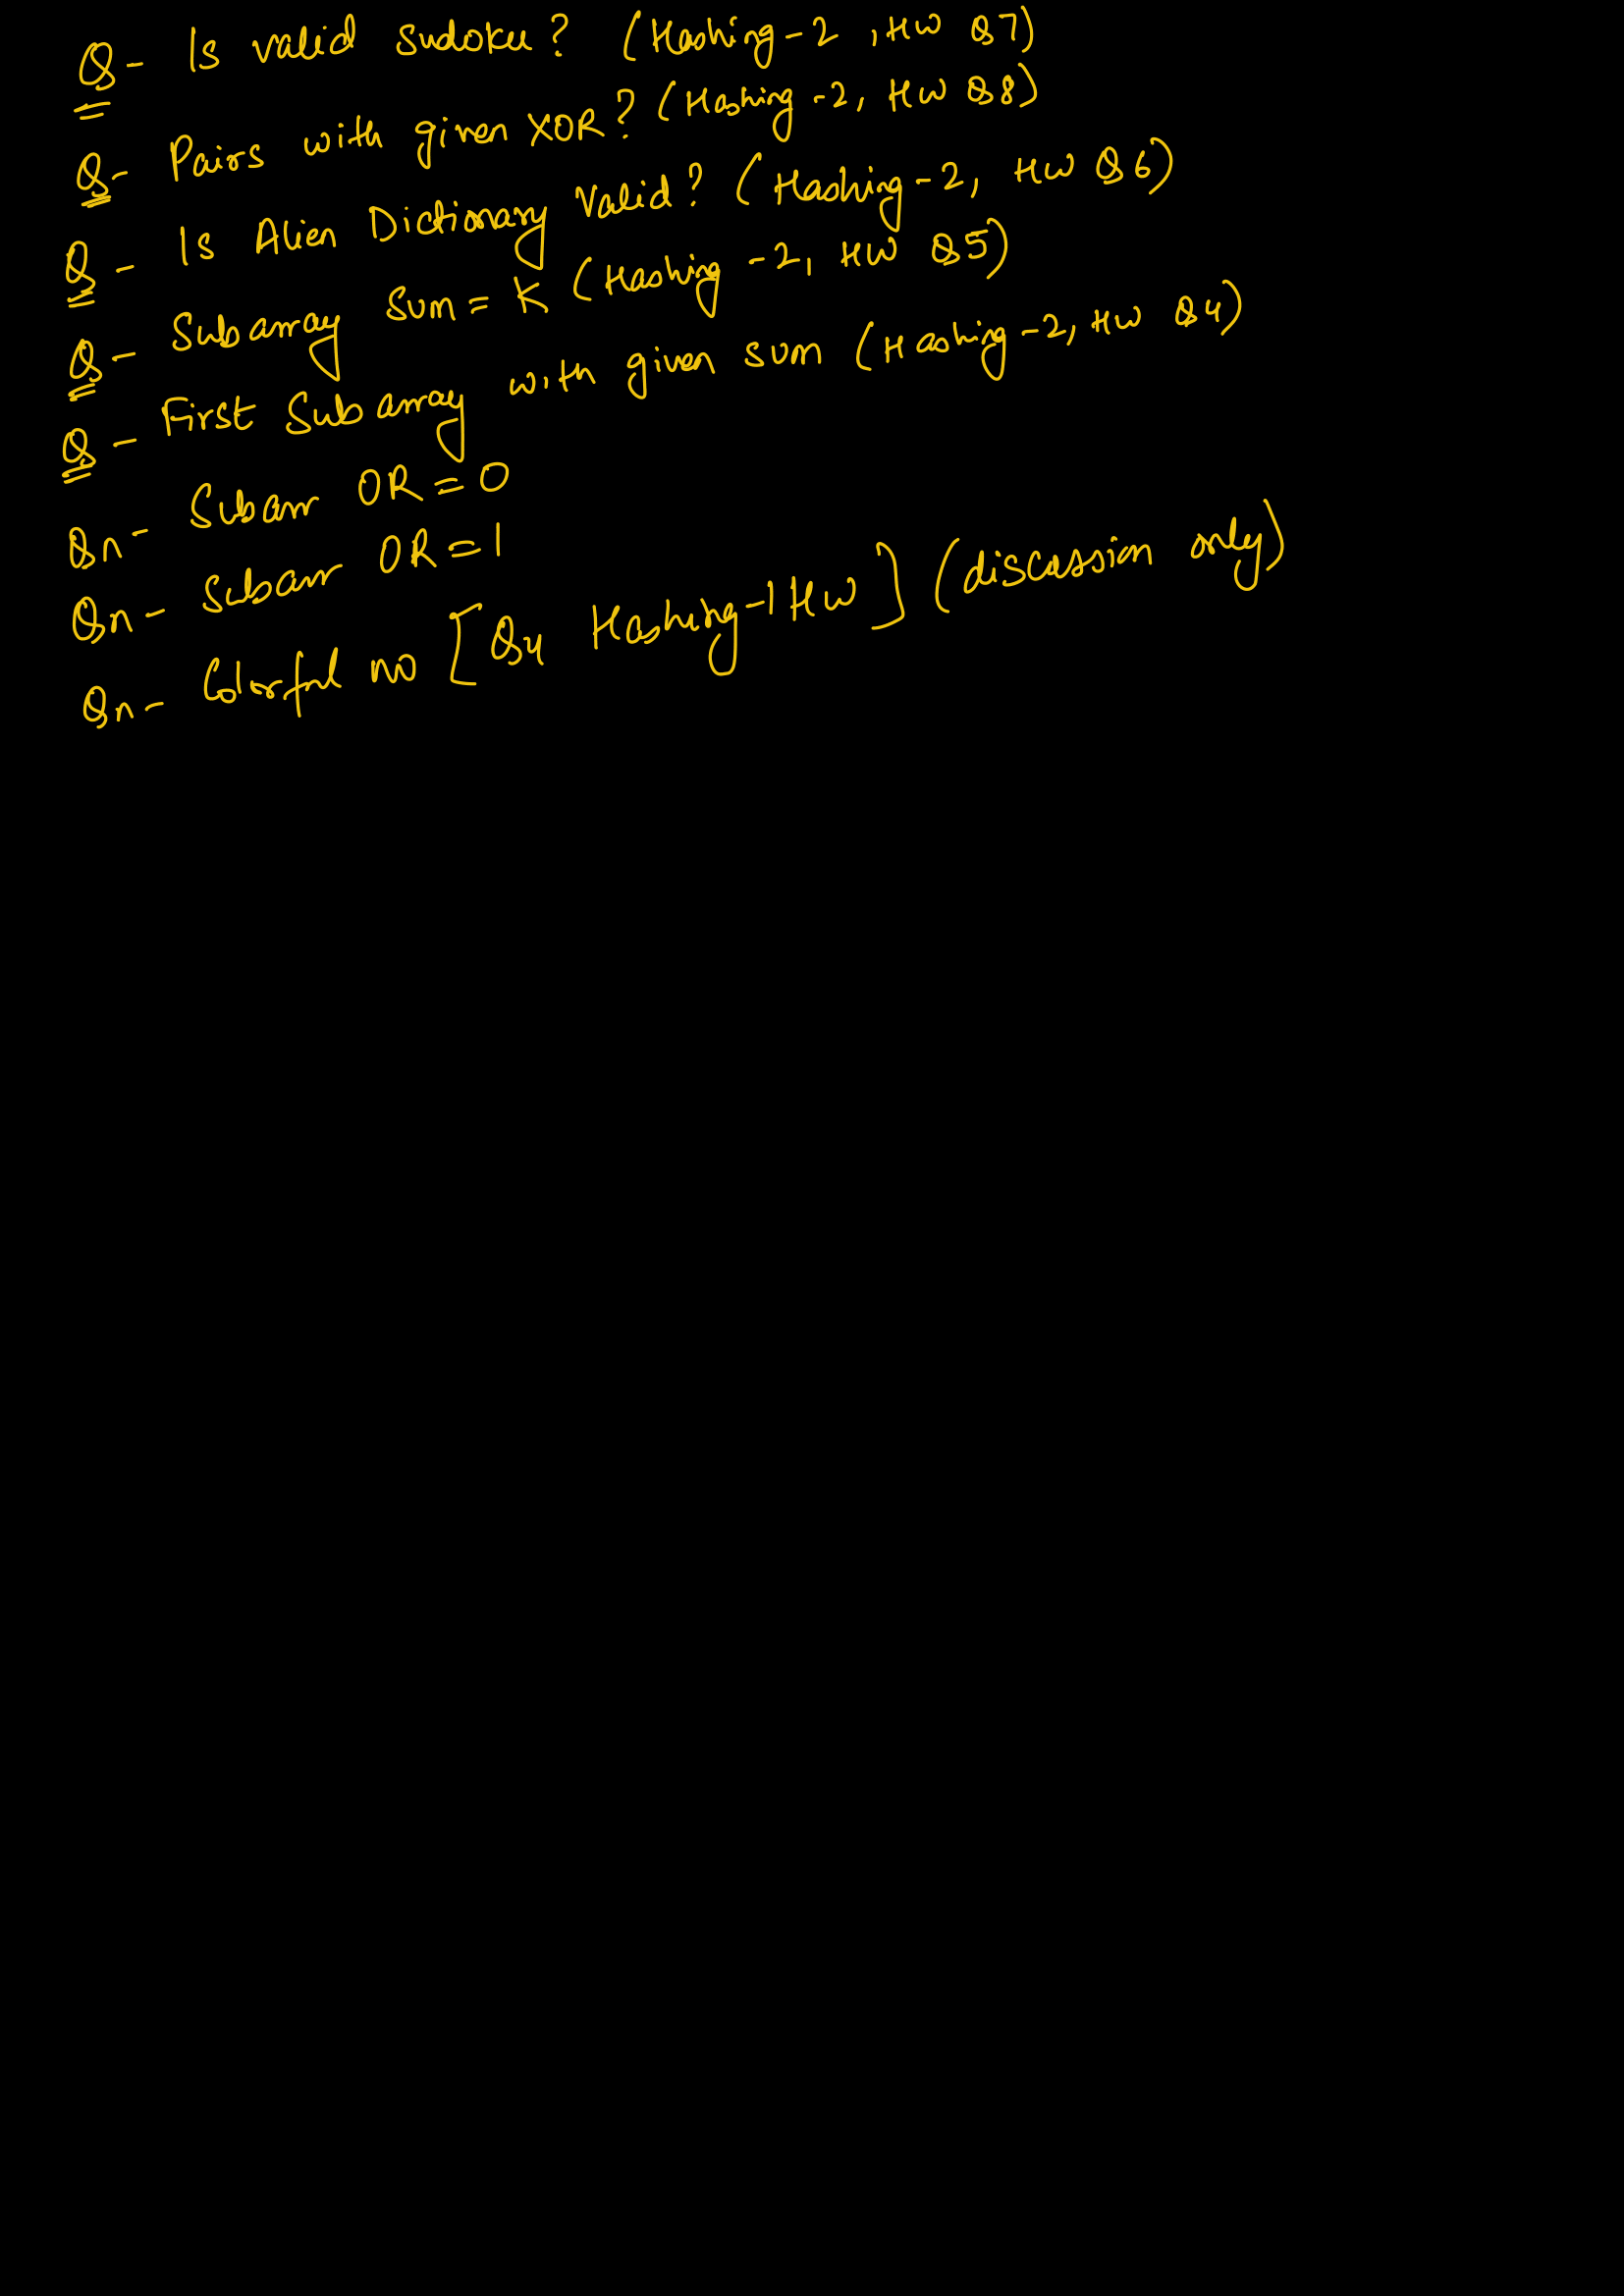 Q- Is valid sudoku? (Hashing-2, HW Q7)
Q- Pairs with given XOR? (Hashing-2, HW Q8)
Q- Is Alien Dictionary Valid? (Hashing-2, HW Q6)
Q- Subarray sum = K (Hashing-2, HW Q5)
Q- First Subarray with given sum (Hashing-2, HW Q4)
Qn- Subarr OR = 0
Qn- Subarr OR = 1
Qn- Colorful no [Q4 Hashing-1 HW] (discussion only)